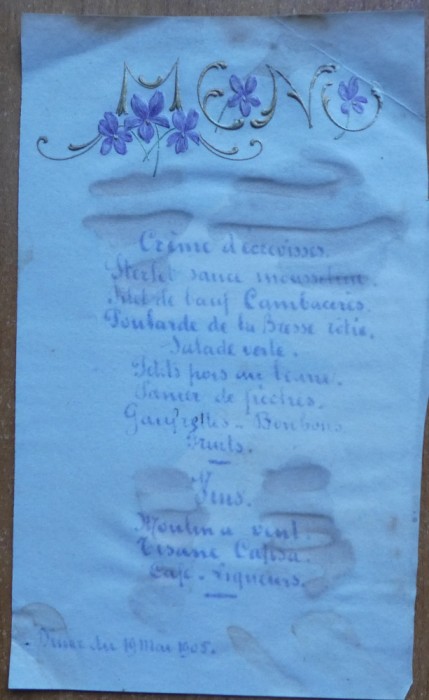 MENU
Crème d'écrevisses.
Sterlet sauce mousseline.
Filet de bœuf Cambacérès.
Poularde de la Bresse rôtie.
Salade verte.
Petits pois au beurre.
Panier de pêches.
Gaufrettes - Bonbons
Fruits.
Vins.
Moulin à vent.
Tisane
Café - Liqueurs.
Dîner du 19 Mai 1905.